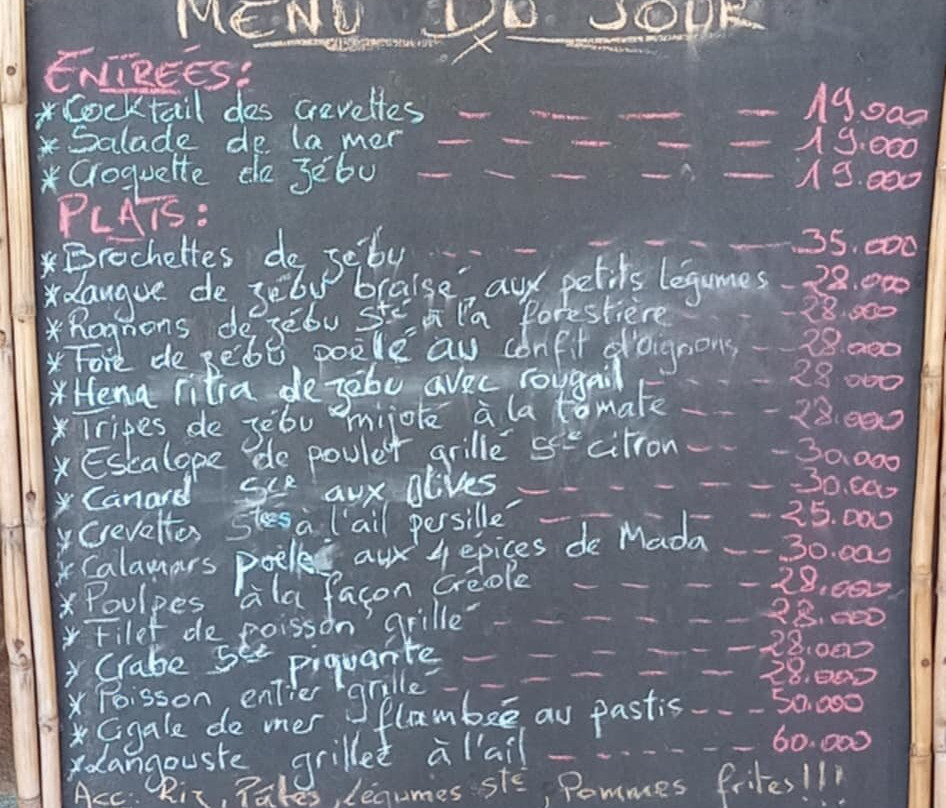 MENU DU JOUR
ENTRÉES:
* Cocktail des crevettes — — — — — 19.000
* Salade de la mer — — — — — — 19.000
* Croquette de zébu — — — — — — 19.000
PLATS:
* Brochettes de zébu - - - - - - - - 35.000
* Langue de zébu braisé aux petits légumes - 28.000
* Rognons de zébu Sté à la forestière - - - 28.000
* Foie de zébu poêlé au confit d'oignons - - 28.000
* Hena ritra de zébu avec rougail - - - - 28.000
* Tripes de zébu mijoté à la tomate - - - 28.000
* Escalope de poulet grillé Sce citron - - - 30.000
* Canard Sce aux olives - - - - - - 30.000
* Crevettes Stes à l'ail persillé - - - - - 25.000
* Calamars poêlés aux 4 épices de Mada - - 30.000
* Poulpes à la façon créole - - - - - 28.000
* Filet de poisson grillé - - - - - - - 28.000
* Crabe Sce piquante - - - - - - - 28.000
* Poisson entier grillé - - - - - - - 28.000
* Cigale de mer flambée au pastis - - - 50.000
* Langouste grillée à l'ail - - - - - - - 60.000
Acc: Riz, Pâtes, Légumes Sté, Pommes frites!!!